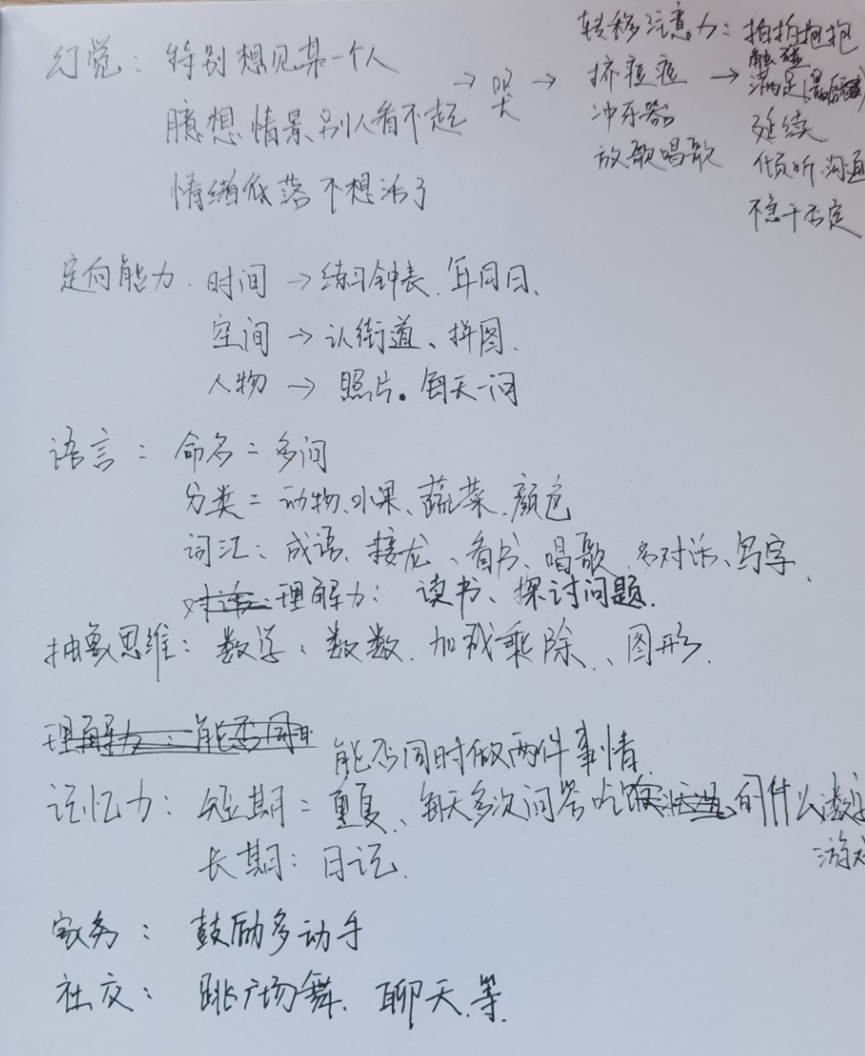 幻觉：特别想见某一个人
臆想情景,别人看不起 → 哭 →
情绪低落不想活了
转移注意力：
挤痘痘 →
冲牙器
放歌唱歌
拍拍抱抱
触碰
满足
延续
倾听.沟通
不急于否定
定向能力.时间 → 练习钟表、年月日、
空间 → 认街道、拼图.
人物 → 照片.每天一问
语言：命名=多问
分类=动物、水果、蔬菜、颜色
词汇：成语、接龙、看书、唱歌、多对话、写字、
理解力：读书、探讨问题.
抽象思维：数学、数数、加减乘除、、图形.
能否同时做两件事情
记忆力：短期=重复、每天多次问答吃的什么数字
游戏
长期：日记.
家务：鼓励多动手
社交：跳广场舞、聊天.等.